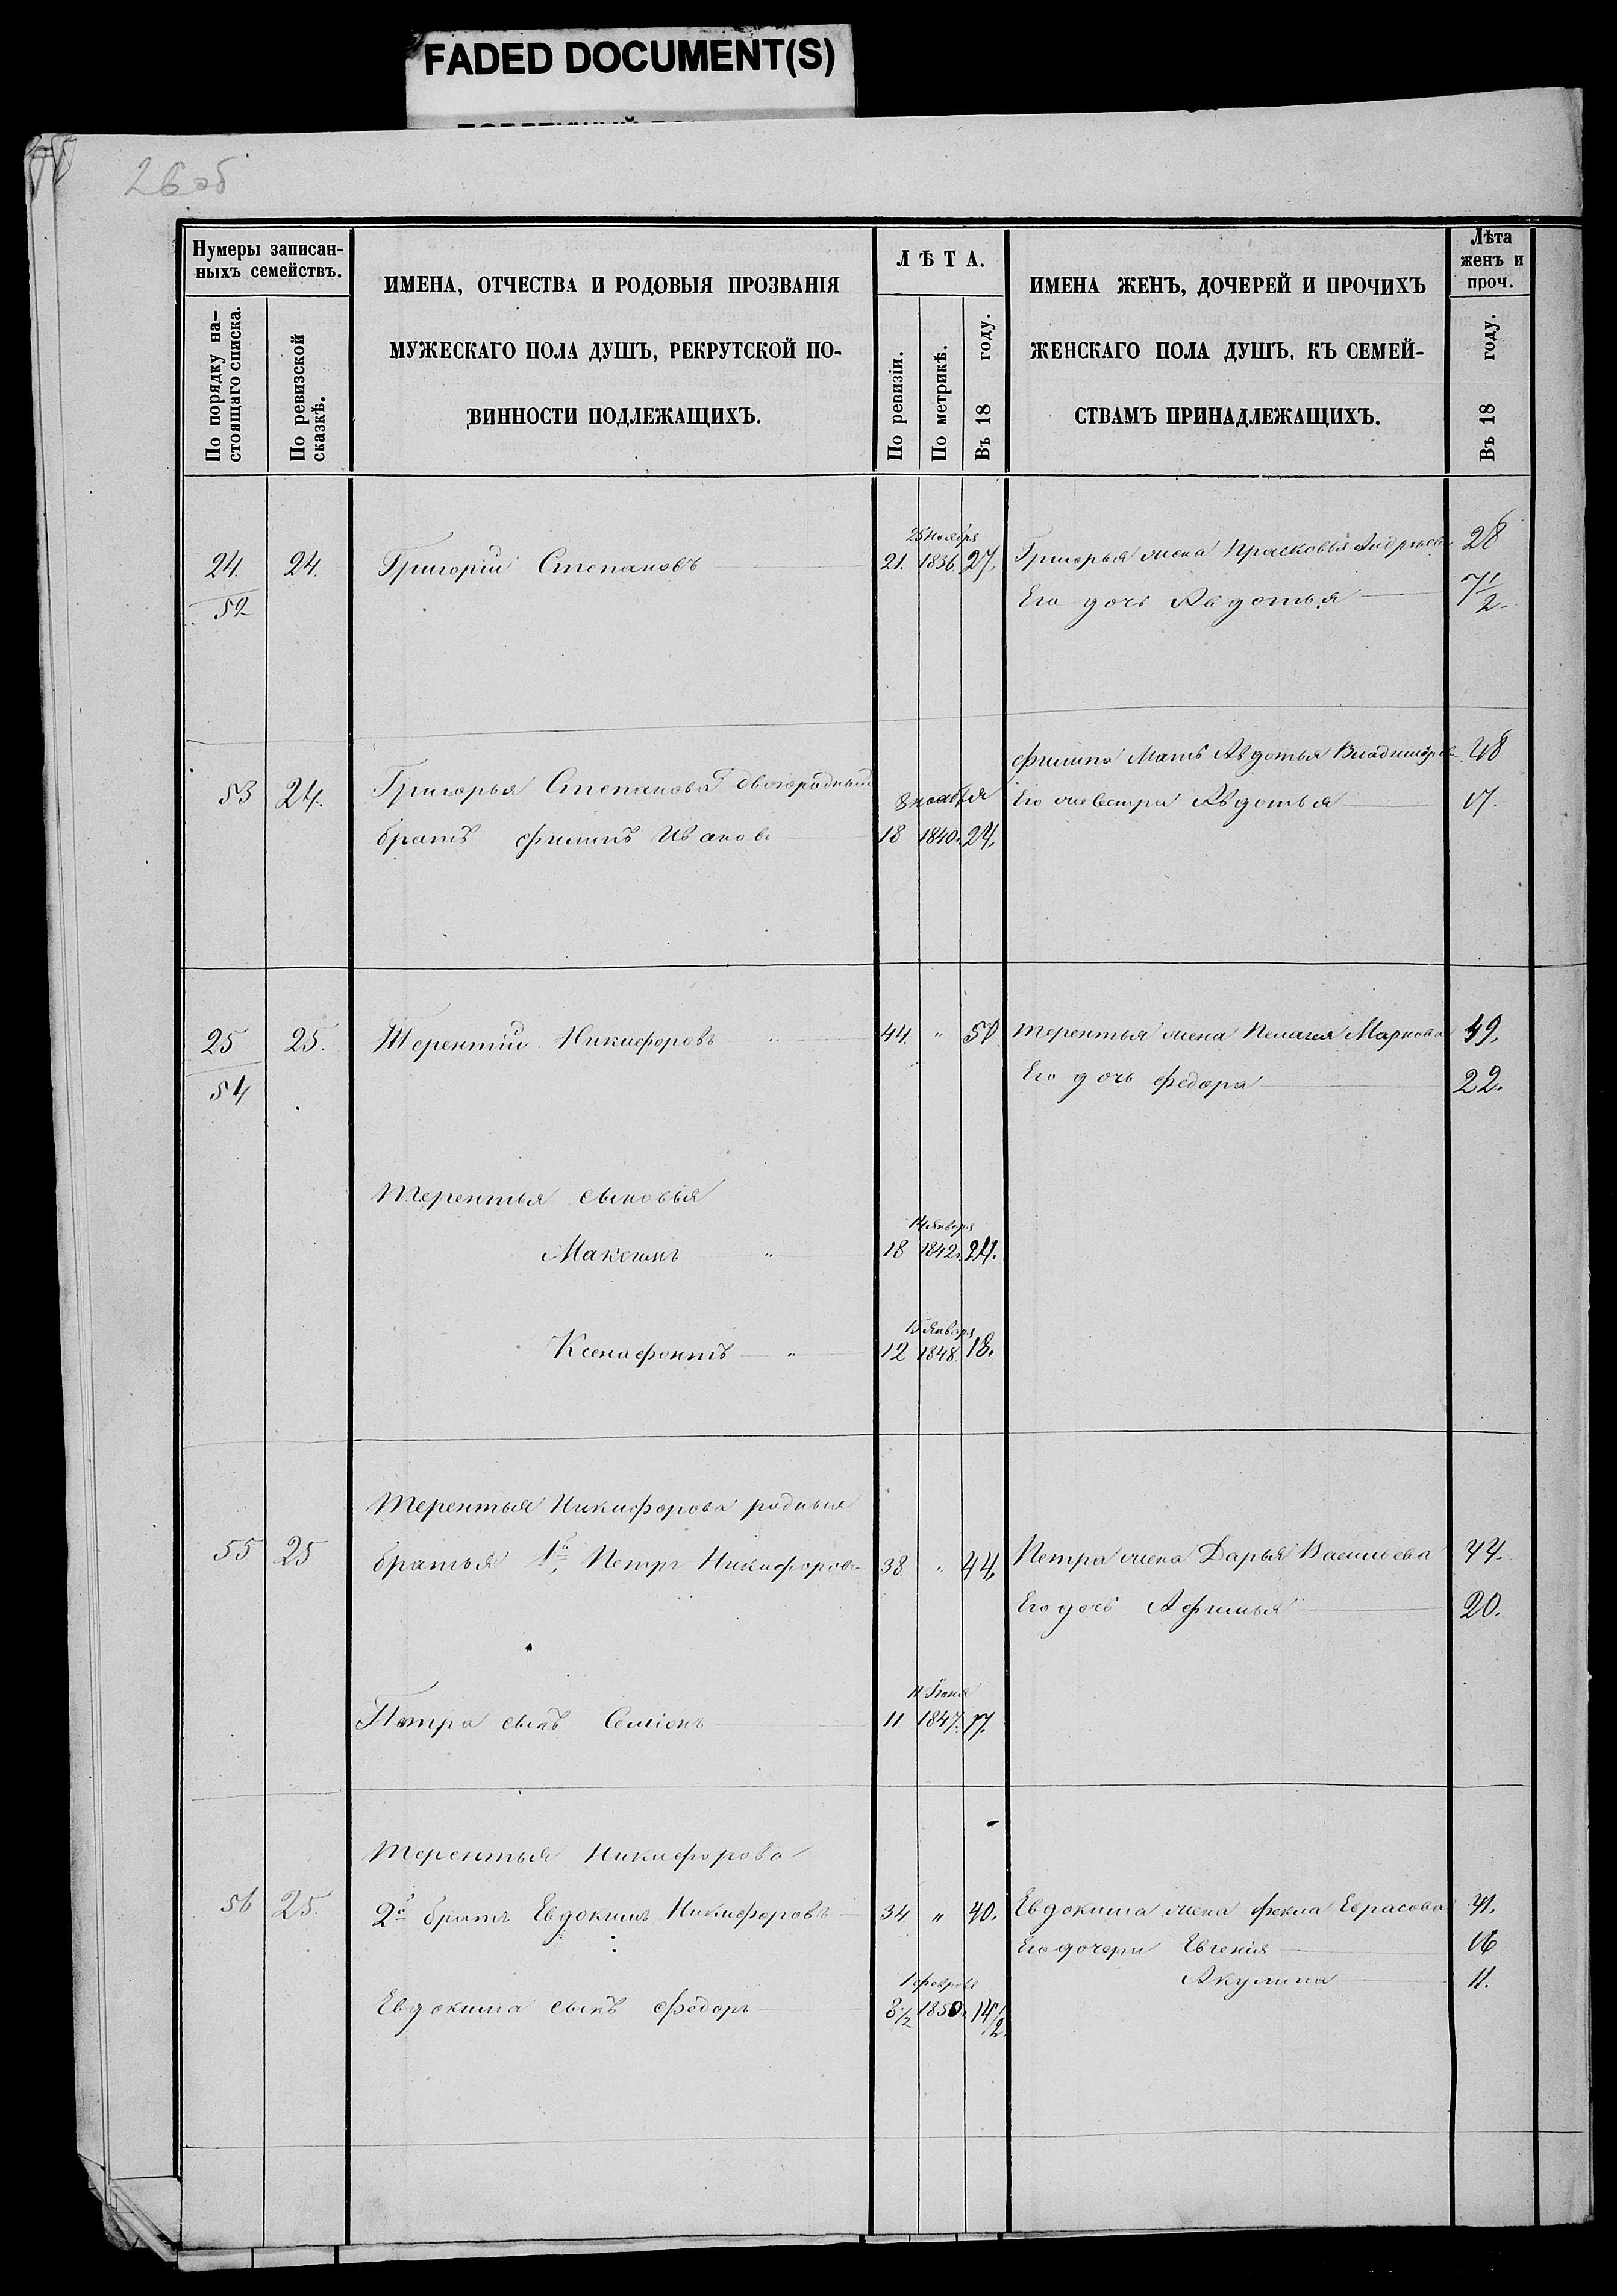 FADED DOCUMENT(S)
26об
Нумеры записан-
ныхъ семействъ.
По порядку на-
стоящаго списка.
По ревизской
сказкѣ.
ИМЕНА, ОТЧЕСТВА И РОДОВЫЯ ПРОЗВАНІЯ
МУЖЕСКАГО ПОЛА ДУШЪ, РЕКРУТСКОЙ ПО-
ВИННОСТИ ПОДЛЕЖАЩИХЪ.
ЛѢТА.
По ревизіи.
По метрикѣ.
Въ 18 году.
ИМЕНА ЖЕНЪ, ДОЧЕРЕЙ И ПРОЧИХЪ
ЖЕНСКАГО ПОЛА ДУШЪ, КЪ СЕМЕЙ-
СТВАМЪ ПРИНАДЛЕЖАЩИХЪ.
Лѣта
женъ и
проч.
Въ 18 году.
25 Ноября
24. 24. Григорій Степановъ 21. 1836. 27. Григорья жена Прасковья Андреева 28
52 Его дочь Авдотья 7 1/2.
Филипа Мать Авдотья Владимірова 48
53 24. Григорья Степанова двоюродный 8 ноября Его сестра Авдотья 17.
братъ Филипъ Иванов 18 1840. 24.
25 25. Терентій Никифоровъ " 44. " 50 Терентья жена Пелагея Маркова 49.
54 Его дочь Федора 22.
Терентья сыновья
14 Января
Максимъ " 18 1842. 24.
15 Января
Ксенафонтъ " 12 1848. 18.
Терентья Никифорова родныя
55 25 братья 1й Петръ Никифоров 38 " 44. Петра жена Дарья Васильева 44.
Его дочь Афимья 20.
11 Іюня
Петра сынъ Семіонъ 11 1847. 17.
Терентья Никифорова
56 25. 2й братъ Евдокимъ Никифоровъ 34 " 40. Евдокима жена Фекла Герасова 41.
Его дочери Евгенія 16
Акулина 11.
1 февраля
Евдокима сынъ Федоръ 8 1/2 1850. 14 1/2.